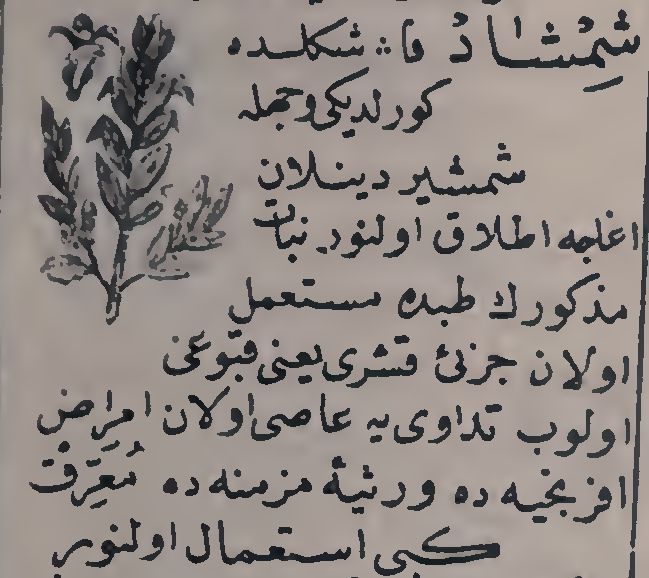 شِمْشَادْ فا :: شكلسده
كورلديكى وجهله
شمشير دينلان
اغاجه اطلاق اولنور. نبات
مذكورك طبده مستعمل
اولان جزئ قشرى يعنى قبوغى
اولوب تداوى يه عاصى اولان امراض
افرنجيه ده ورثيۀ مزمنه ده مُعَرِّقْ
كبى استعمال اولنور